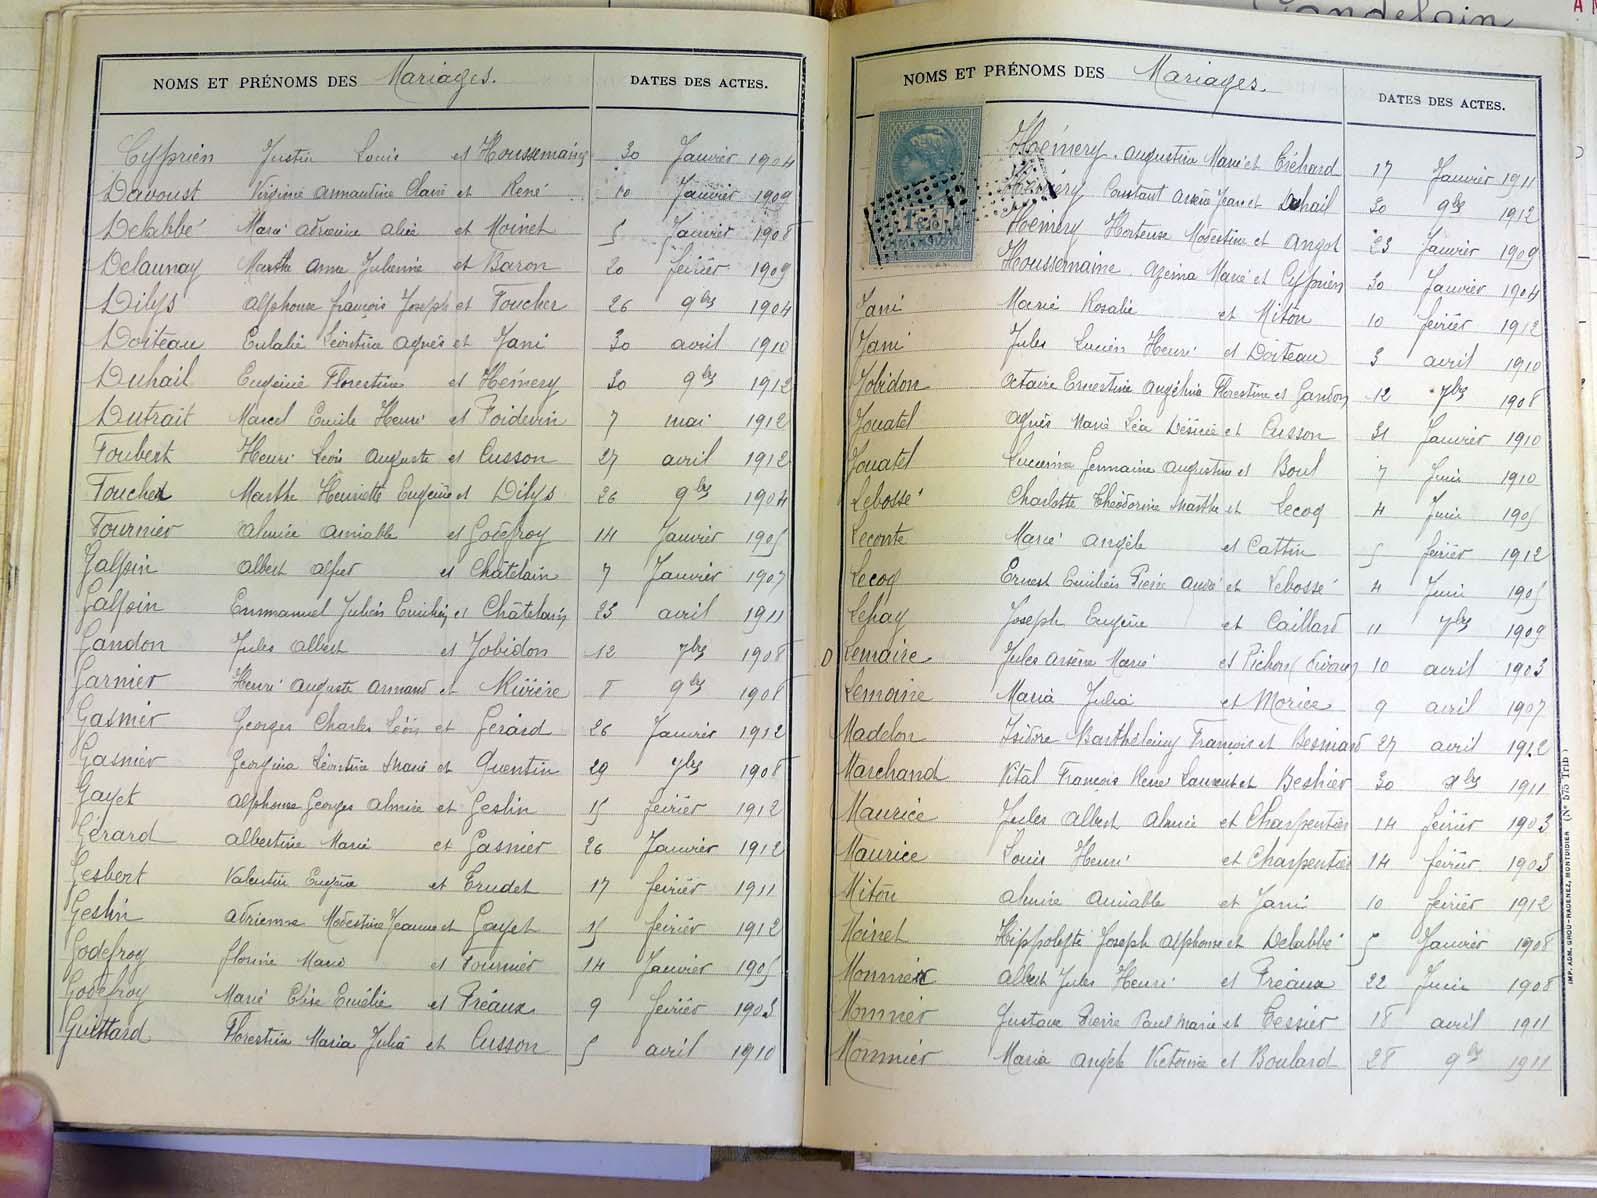 Candelain
NOMS ET PRÉNOMS DES Mariages. DATES DES ACTES.
Cyprien Justin Louis et Houssemaine 30 Janvier 1904
Davoust Virginie armantine Claire et René 10 Janvier 1909
Delabbé Marie adrienne alice et Moinet 5 Janvier 1908
Delaunay Marthe anna Julienne et Baron 20 feivier 1909
Dilys alphonse françois Joseph et Foucher 26 9bre 1904
Doiteau Eulalie Léontine agnès et Jani 30 avril 1910
Duhail Eugénie Florestine et Hemery 30 9bre 1912
Dutrait Marcel Emile Henri et Poidevin 7 mai 1912
Foubert Henri Léon Auguste et Cusson 27 avril 1912
Foucher Marthe Henriette Eugénie et Dilys 26 9bre 1904
Fournier almire aimable et Godefroy 14 Janvier 1905
Galpin albert alfred et Châtelain 7 Janvier 1907
Galpin Emmanuel Julien Emilien et Châtelain 23 avril 1911
Gandon Jules albert et Jobidon 12 7bre 1908
Garnier Henri auguste armand et 8 9bre 1908
Gasnier Georges Charles Léon et Gérard 26 Janvier 1912
Gasnier Georgina Léontine Marie et Quentin 29 7bre 1908
Gayet alphonse Georges almire et Geslin 15 feivier 1912
Gérard albertine Marie et Gasnier 26 Janvier 1912
Gesbert Valentin Eugène et Trudet 17 feivier 1911
Geslin adrienne Modestine Jeanne et Gayet 15 feivier 1912
Godefroy florine Marie et Fournier 14 Janvier 1905
Godefroy Marie Elise Emélie et Préaux 9 feivier 1903
Guittard Florestine Maria Julia et Cusson 5 avril 1910
NOMS ET PRÉNOMS DES Mariages. DATES DES ACTES.
Hémery. augustine Marie et Tréhard 17 Janvier 1911
Hémery Constant arsène Jean et Duhail 30 9bre 1912
Hémery Hortense Modestine et Angot 23 Janvier 1909
Houssemaine. azéma Marie et Cyprien 30 Janvier 1904
Jani Marie Rosalie et Miton 10 feivier 1912
Jani Jules Lucien Henri et Doiteau 3 avril 1910
Jobidon octavie Ernestine Angélina Florestine et Gandon 12 7bre 1908
Jouatel agnès Marie Léa Désirée et Cusson 31 Janvier 1910
Jouatel Lucienne Germaine augustine et Boul 7 Juin 1910
Lebossé Charlotte Théodorine Marthe et Lecoq 4 Juin 1905
Leconte Marie angèle et Cattin 5 feivier 1912
Lecoq Ernest Emilien Pierre André et Lebossé 4 Juin 1905
Lehay Joseph Eugène et Caillard 11 7bre 1909
D Lemaire Jules arsène Marie et Pichon (divorce) 10 avril 1903
Lemoine Maria Julia et Morice 9 avril 1907
Madelon Isidore Barthélémy François et Besnard 27 avril 1912
Marchand Vital François René Laurent et Beshier 30 Xbre 1911
Maurice Jules Albert Almire et Charpentier 14 feivier 1903
Maurice Louis Henri et Charpentier 14 feivier 1903
Miton almire aimable et Jani 10 feivier 1912
Moinet Hippolyte Joseph alphonse et Delabbé 5 Janvier 1908
Monnier albert Jules Henri et Préaux 22 Juin 1908
Monnier Gustave Pierre Paul Marie et Tessier 18 avril 1911
Monnier Maria angèle Victorine et Boulard 28 9bre 1911
IMP. ADM. GROU-RADENEZ, MONTDIDIER (N° 575 Trib)